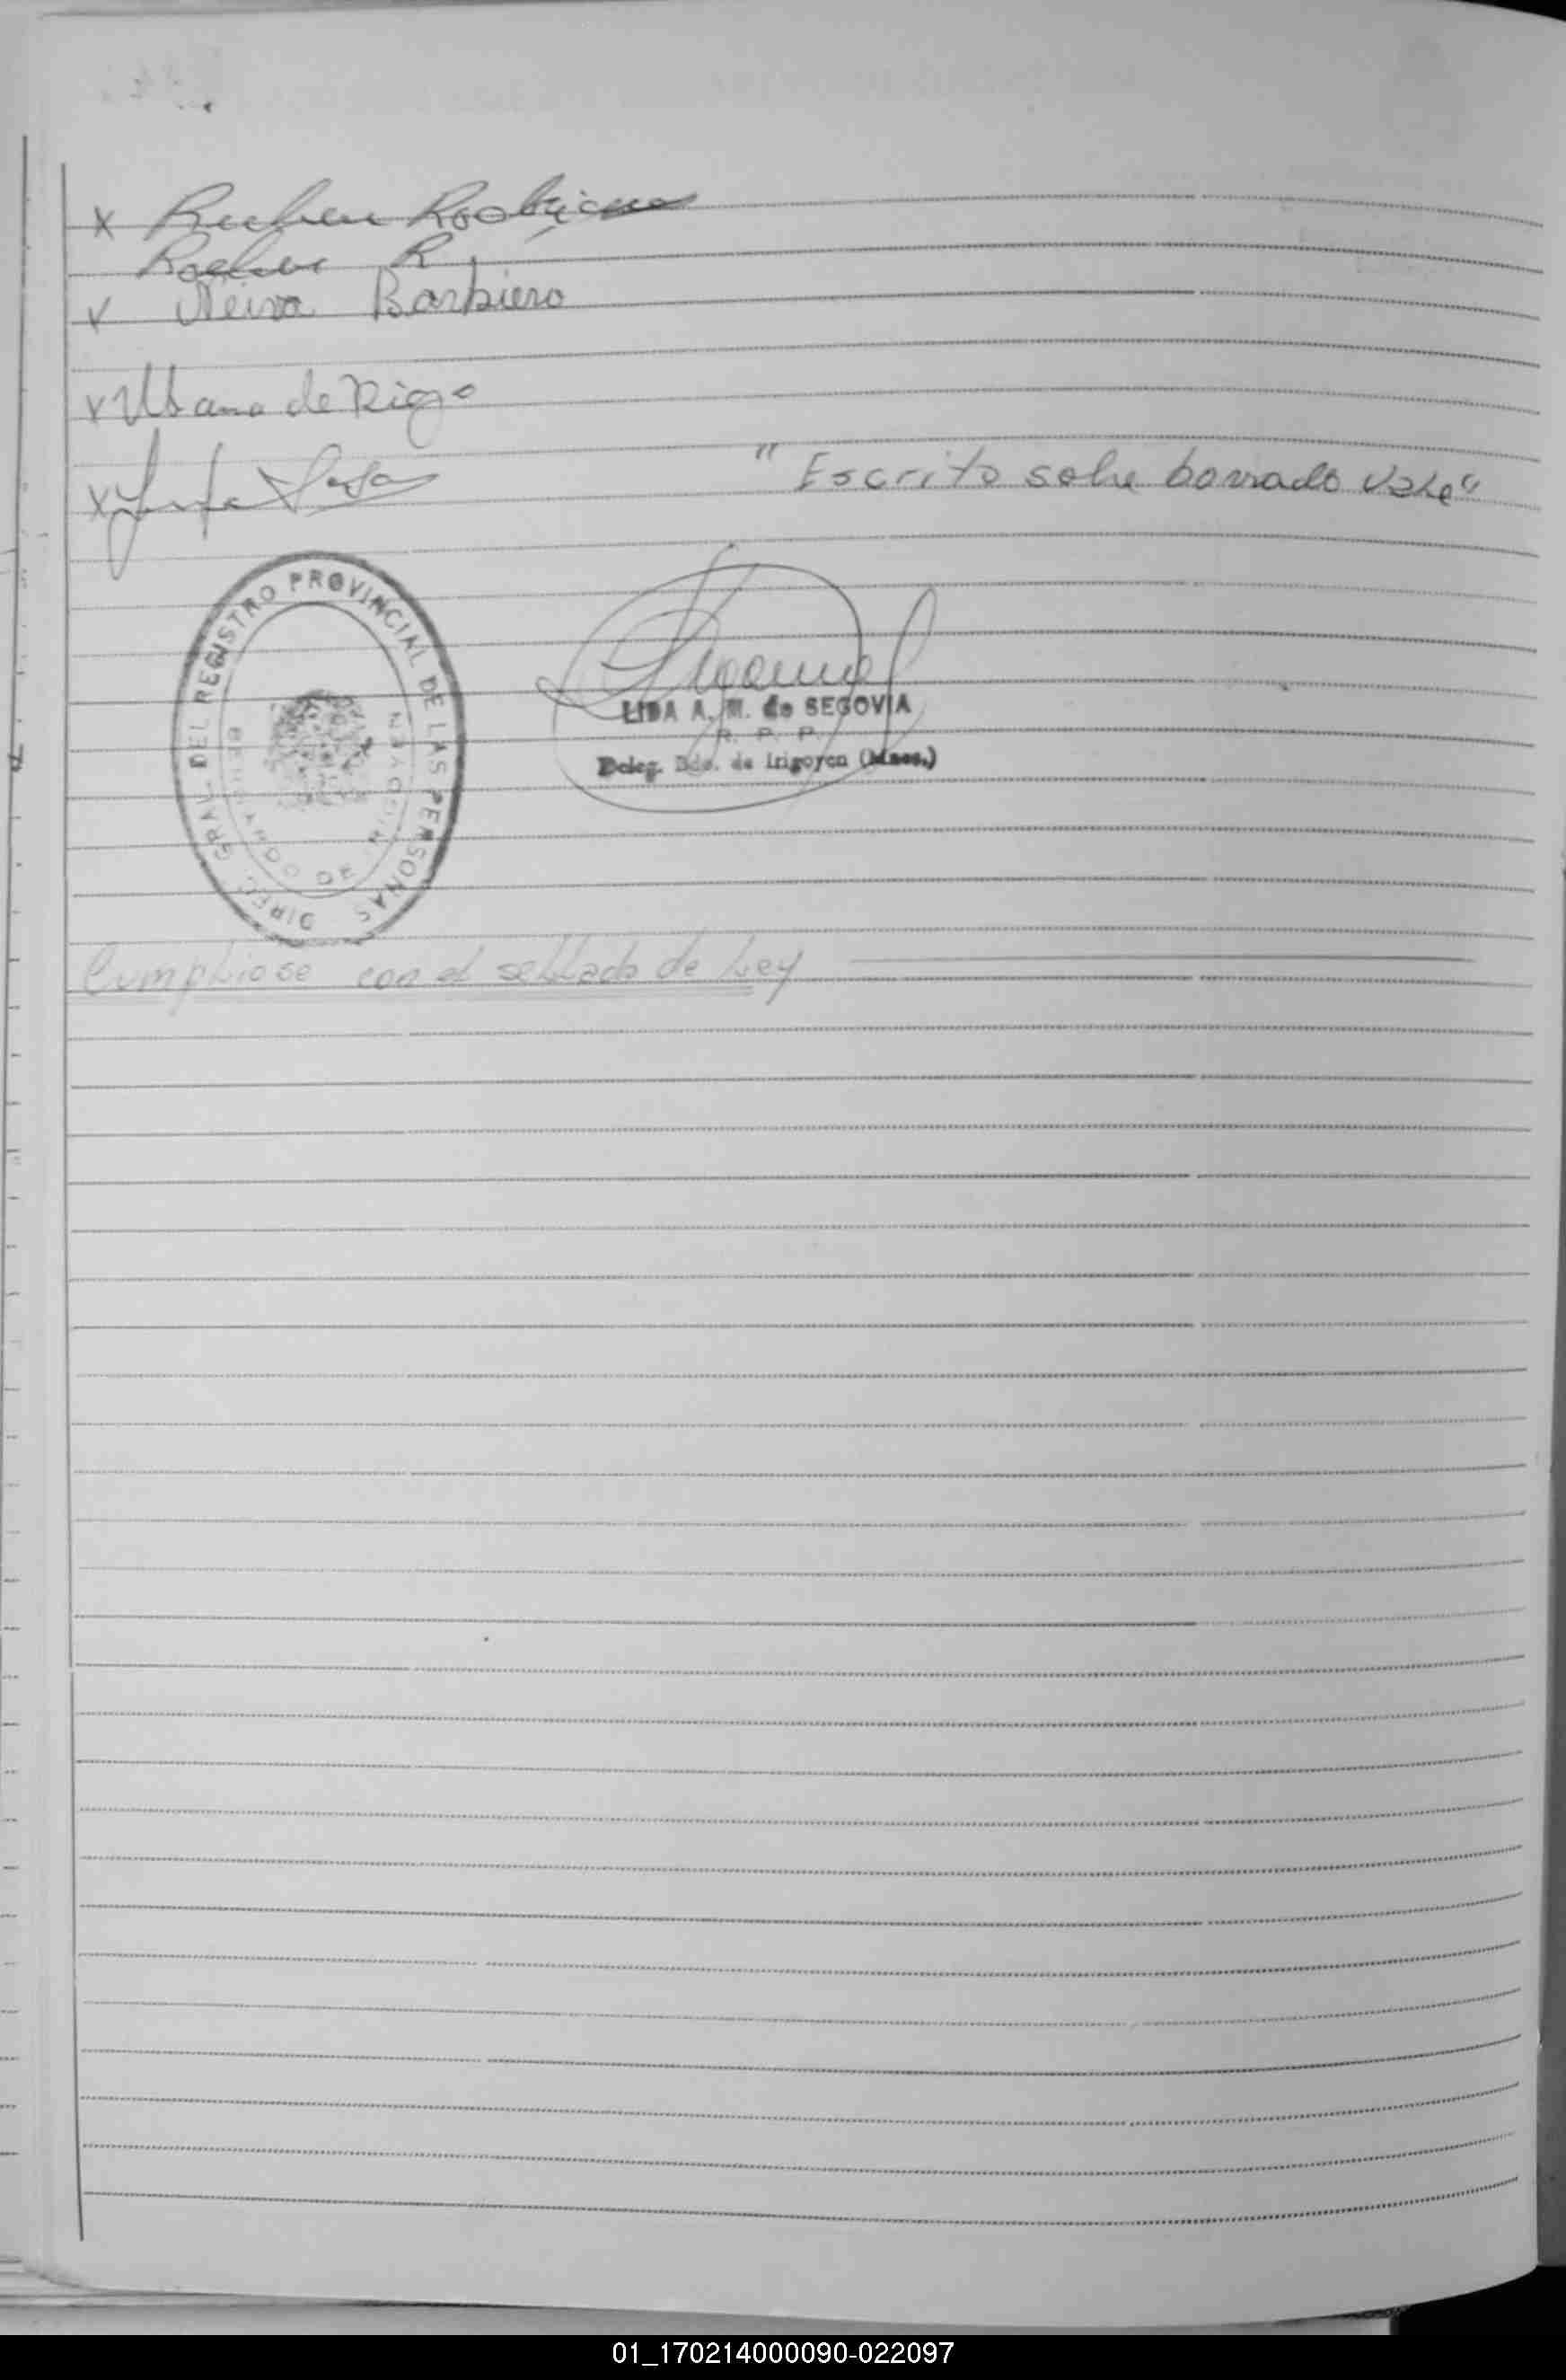 x Ruben
R
v Neiva Barbiero
v Urbana de Rigo
x
" Escrito sobre borrado vale"
DIREC. GRAL. DEL REGISTRO PROVINCIAL DE LAS PERSONAS
BERNARDO DE
LIDA A. M. de SEGOVIA
R. P. P.
Deleg. Bdo. de Irigoyen (Mnes.)
Cumpliose con el sellado de Ley
01_170214000090-022097